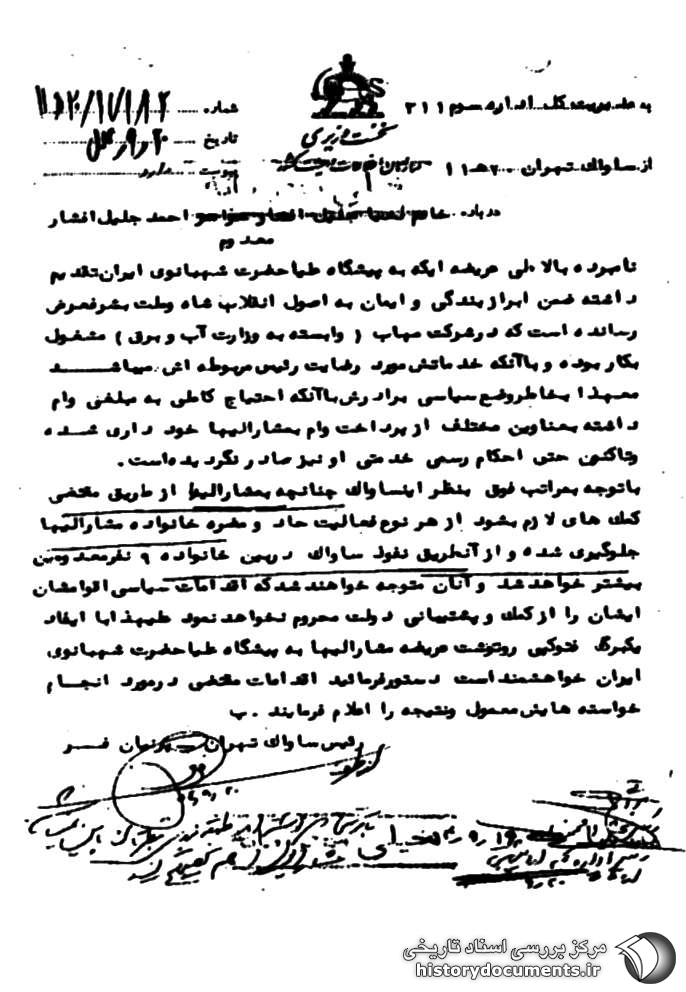 به مدیریت کل اداره سوم ۳۱۱
شماره
نخست وزیری
تاریخ
از ساواک تهران ۲۰ هـ ۱۱
سازمان اطلاعات و امنیت کشور
پیوست دارد
درباره خانم احمد جلیل افشار
معدوم
نامبرده بالا طی عریضه ایکه به پیشگاه علیاحضرت شهبانوی ایران تقدیم
داشته ضمن ابراز بندگی و ایمان به اصول انقلاب شاه و ملت بشرفعرض
رسانده است که در شرکت مهاب ( وابسته به وزارت آب و برق ) مشغول
بکار بوده و باآنکه خدماتش مورد رضایت رئیس مربوطه اش میباشد
معهذا بخاطر وضع سیاسی برادرش باآنکه احتیاج کاملی به مبلغی وام
داشته بعناوین مختلف از پرداخت وام بمشارالیها خودداری شده
وتاکنون حتی احکام رسمی خدمتی او نیز صادر نگردیده است.
باتوجه بمراتب فوق بنظر اینساواک چنانچه بمشارالیها از طریق مقتضی
کمک های لازم بشود از هر نوع فعالیت حاد و مضره خانواده مشارالیها
جلوگیری شده و از آنطریق نفوذ ساواک دربین خانواده ۹ نفر معدومین
بیشتر خواهد شد و آنان متوجه خواهند شد که اقدامات سیاسی اقوامشان
ایشان را از کمک و پشتیبانی دولت محروم نخواهد نمود علیهذا با ایفاد
یکبرگ فتوکپی رونوشت عریضه مشارالیها به پیشگاه علیاحضرت شهبانوی
ایران خواهشمند است دستور فرمائید اقدامات مقتضی در مورد انجام
خواسته هایش معمول و نتیجه را اعلام فرمایند . ب
رئیس ساواک تهران - پرنیان فر
از طرف
مرکز بررسی اسناد تاریخی
historydocuments.ir